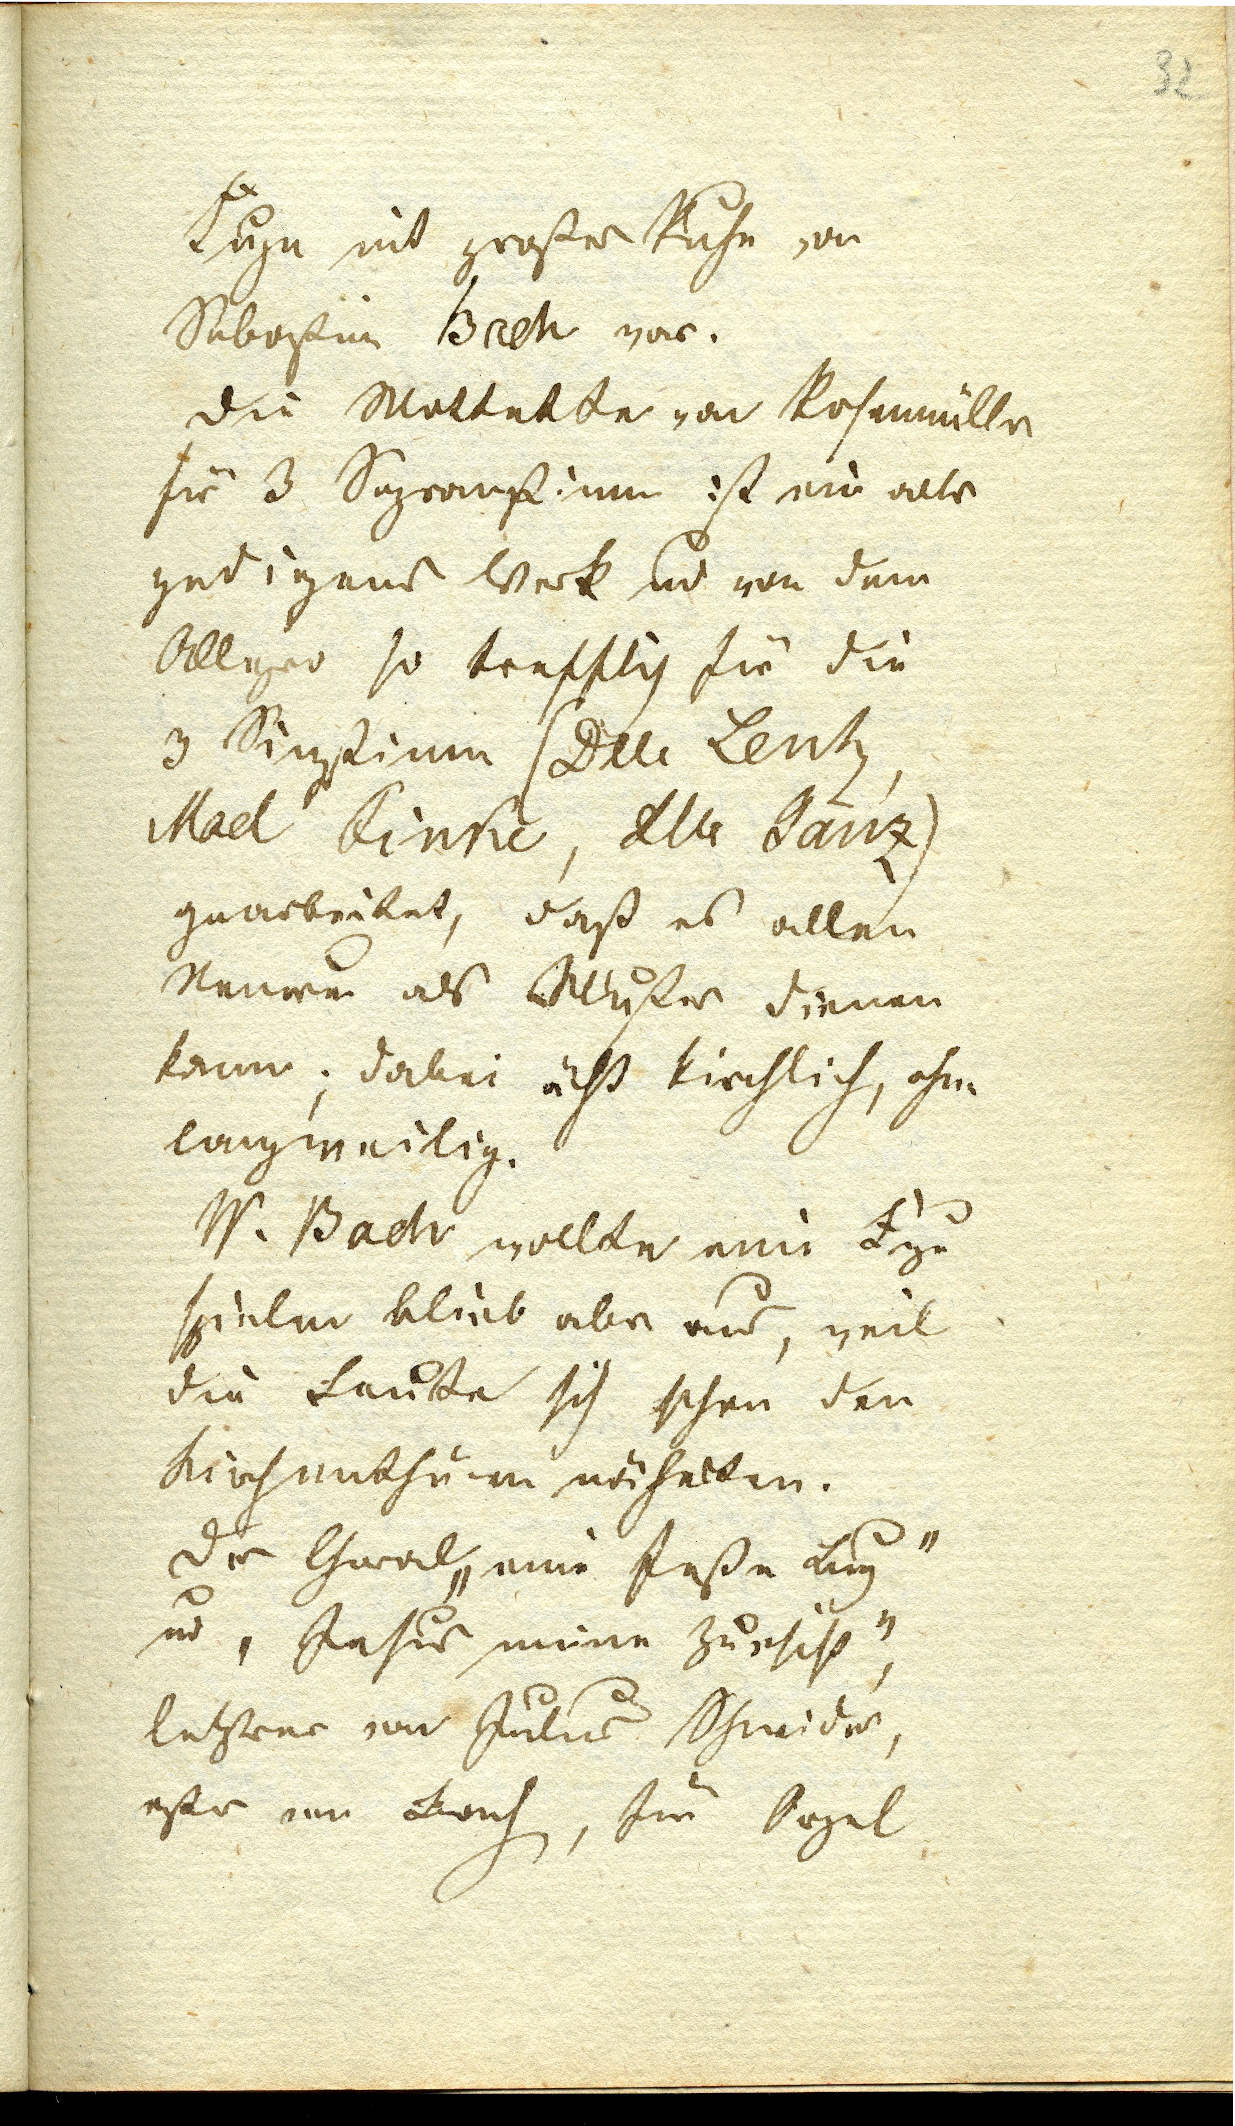 32
Fuge mit großer Ruhe von
Sebastian Bach vor.
Die Mottette von Rosenmüller
für 3 Sopranstimmen ist ein altes
gediegenes Werk und von dem
Allegro so trefflich für die
3 Singstimmen (Dlle Lentz,
Mad Finke, Dlle Ganz)
gearbeitet, daß es allen
Neueren als Muster dienen
kann; dabei ächt kirchlich, ohne
langweilig.
W. Bach wollte eine Fuge
spielen blieb aber aus, weil
die Leute sich schon den
Kirchenthüren näherten.
Der Choral „eine feste Burg"
und „Jesus meine Zuversicht",
letzterer von Julius Schneider,
erster von Bach, für Orgel